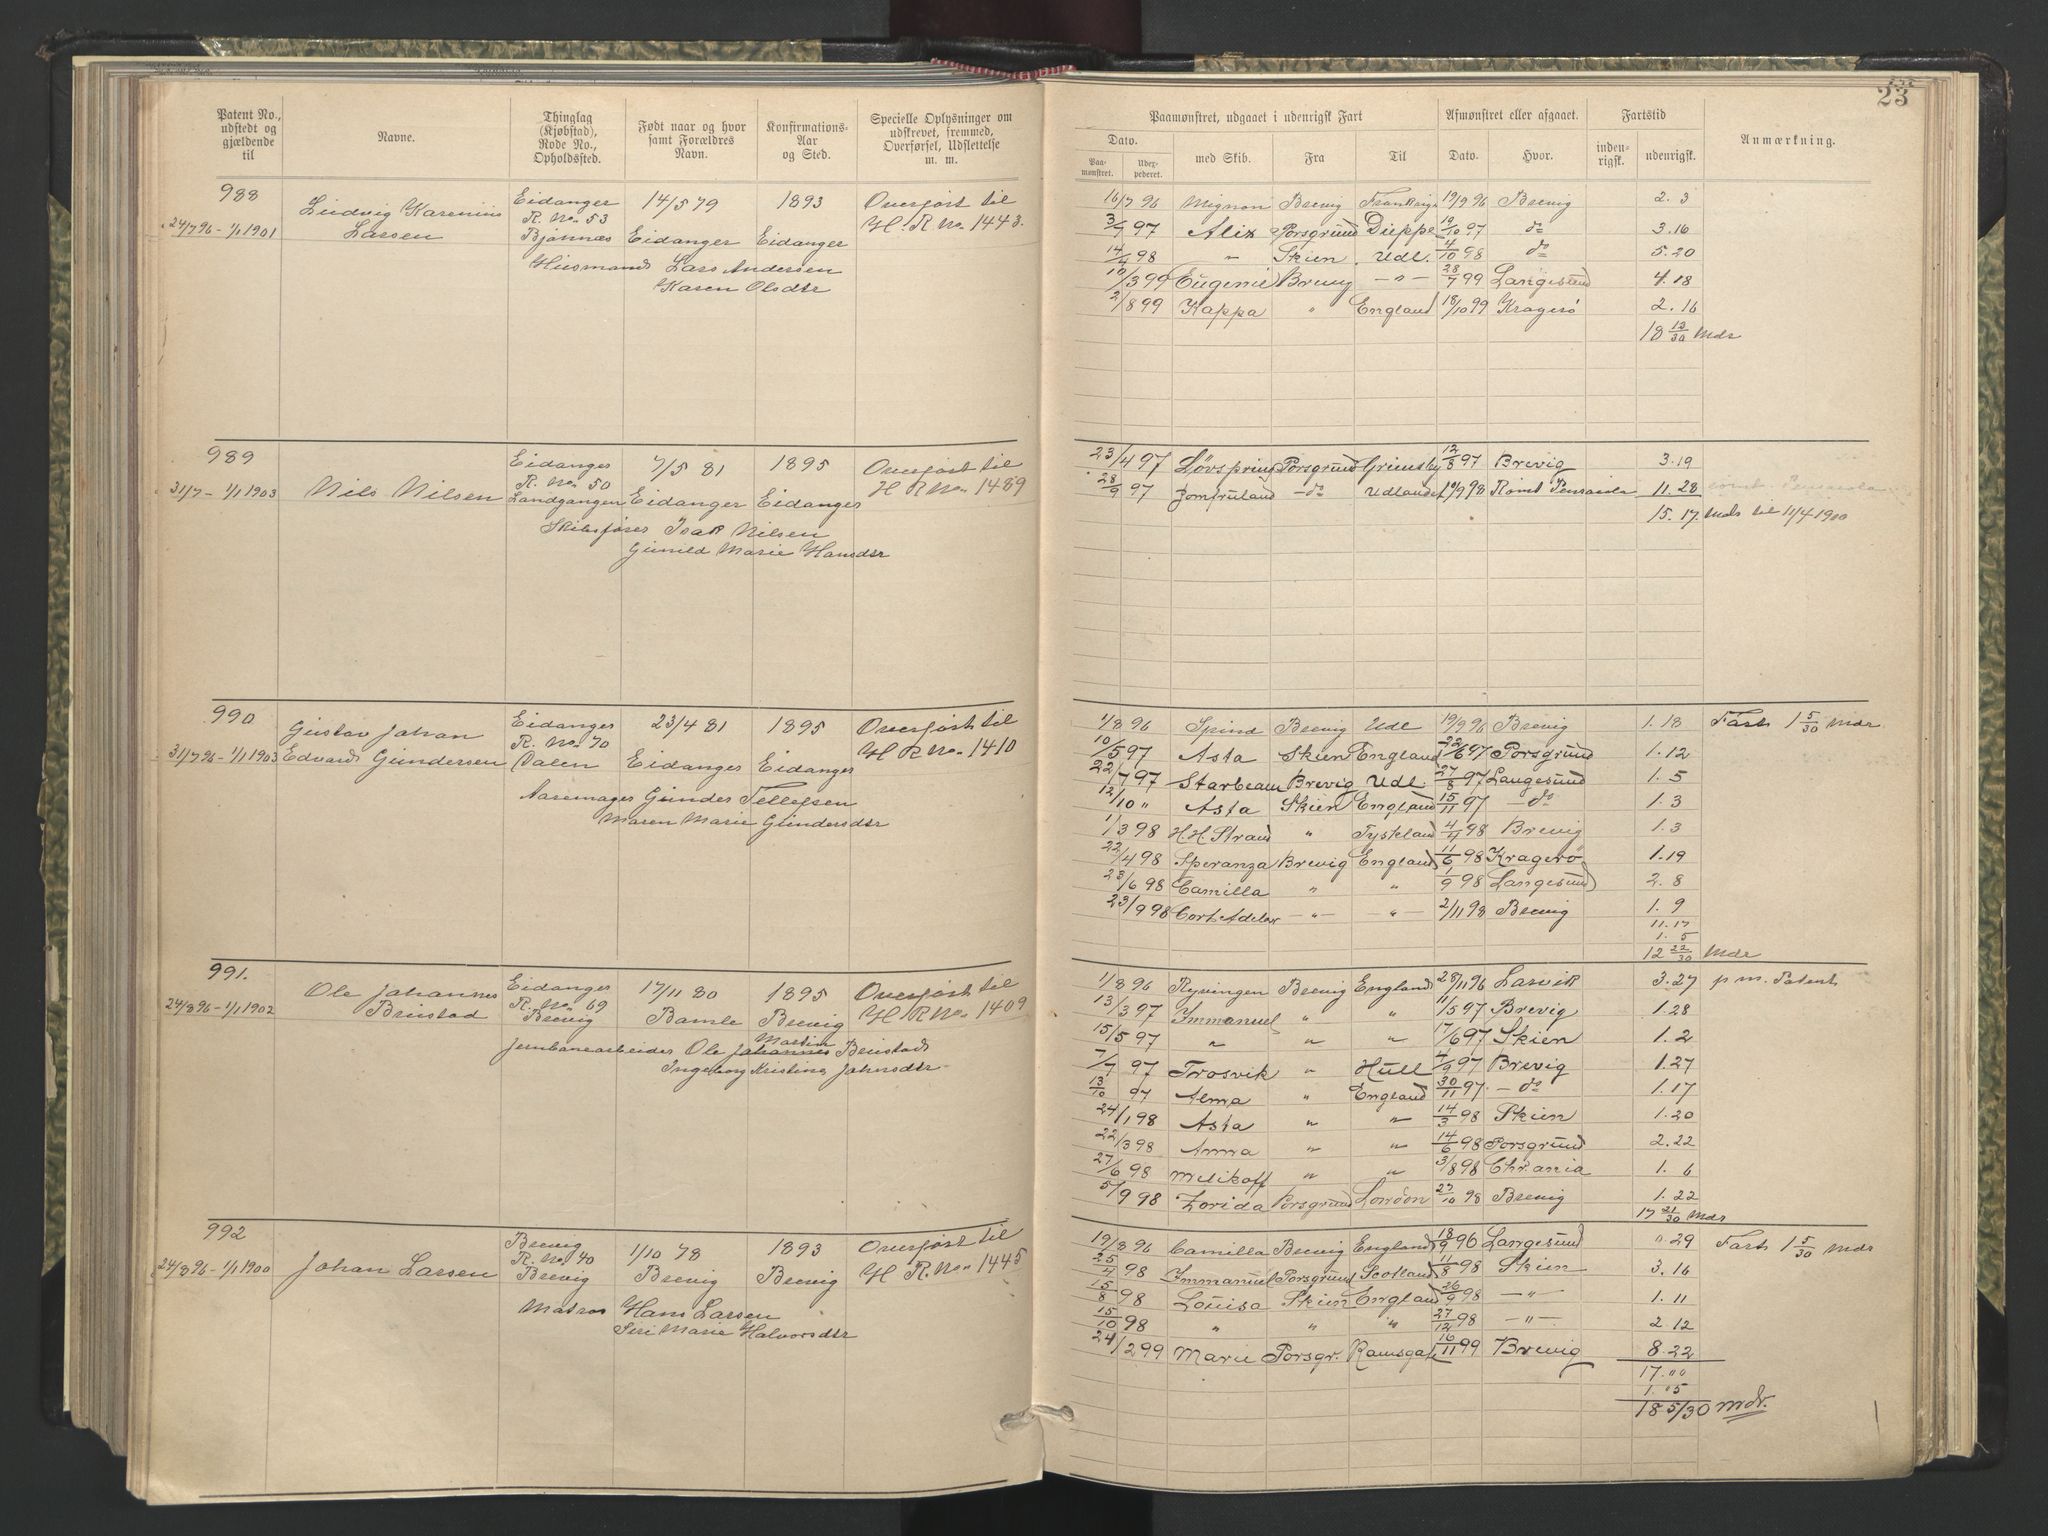 23
Patent No., udstedt og gjældende til
Navne.
Thinglag (Kjøbstad), Rode No., Opholdssted.
Født naar og hvor samt Forældres Navn.
Konfirmations- Aar og Sted.
Specielle Oplysninger om udskrevet, fremmed, Overførsel, Udslettelse m. m.
Paamønstret, udgaaet i udenrigsk Fart
Afmønstret eller afgaaet.
Fartstid
Anmærkning.
Dato.
med Skib.
Fra
Til
Dato.
Hvor.
inden- rigsk.
udenrigsk.
Paa- mønstret.
Udex- pederet.
988
24/7 96 - 1/1 1901
Ludvig Karenius
Larsen
Eidanger
R. No. 53
Bjønnæs
14/5 79
Eidanger
1893
Eidanger
Overført til
H. R. No. 1443.
Husmand Lars Andersen
Karen Olsdtr
16/7 96 Mignon Brevig Frankrige 19/9 96 Brevig 2. 3
3/7 97 Alix Porsgrund Dieppe 19/10 97 do 3. 16
14/4 98 " Skien Udl. 4/10 98 do 5. 20
10/3 99 Eugenie Brevig -"- 28/7 99 Langesund 4. 18
2/8 99 Kappa " England 18/10 99 Kragerø 2. 16
18 12/30 Mdr
989
31/7 - 1/1 1903
Nils Nilsen
Eidanger
R. No. 50
Landgangen
7/5 81
Eidanger
1895
Eidanger
Overført til
H R No. 1489
Skibsfører Isak Nilsen
Gunild Marie Hansdtr
23/4 97 Løvspring Porsgrund Grimsby 12/8 97 Brevig 3. 19
28/9 97 Jomfruland -do Udlandet 19/9 98 Rømt Pensacola 11. 28 rømt Pensacola
15. 17. Mdr til 11/4 1900
990
31/7 96 - 1/1 1903
Gustav Johan
Edvard Gundersen
Eidanger
R. No. 70
Dalen
23/4 81
Eidanger
1895
Eidanger
Overført til
H R No. 1410
Aaremager Gunder Tellefsen
Maren Marie Gundersdtr
1/8 96 Spind Brevig Udl 19/9 96 Brevig 1. 18 Fart 1 5/30 Mdr
10/5 97 Asta Skien England 22/6 97 Porsgrund 1. 12
22/7 97 Starbeam Brevig Udl. 27/8 97 Langesund 1. 5
12/10 " Asta Skien England 15/11 97 -do 1. 3
1/3 98 H H Strand " Tyskland 4/4 98 Brevig 1. 3
22/4 98 Speranza Brevig England 11/6 98 Kragerø 1. 19
23/6 98 Camilla " " 1/9 98 Langesund 2. 8
23/9 98 Cort Adeler -"- -"- 2/11 98 Brevig 1. 9
11. 17
1. 5
12 22/30 Mdr
991.
24/8 96 - 1/1 1902
Ole Johannes
Brustad
Eidanger
R. No. 69
Brevig
17/11 80
Bamle
1895
Brevig
Overført til
H R No. 1409
Jernbanearbeider Ole Johannes Martin Brustad
Ingeborg Kristine Johnsdtr
1/8 96 Ryvingen Brevig England 28/11 96 Larvik 3. 27 p m. Patent
13/3 97 Immanuel " " 11/5 97 Brevig 1. 28
15/5 97 " " " 17/6 97 Skien 1. 2
7/7 97 Trosvik " Hull 4/9 97 Brevig 1. 27
13/10 97 Alma " England 30/11 97 -do 1. 17
24/1 98 Asta " " 14/3 98 Skien 1. 20
22/3 98 Anna " " 14/6 98 Porsgrund 2. 22
27/6 98 Melikoff " " 3/8 98 Chrania 1. 6
5/9 98 Zorida Porsgrund London 27/10 98 Brevig 1. 22
17 21/30 Mdr
992
24/8 96 - 1/1 1900
Johan Larsen
Brevig
R. No. 40
Brevig
1/10 78
Brevig
1893
Brevig
Overført til
H R. No. 1445
Matros Hans Larsen
Siri Marie Halvorsdtr
19/8 96 Camilla Brevig England 18/9 96 Langesund ". 29 Fart 1 5/30 Mdr
25/4 98 Immanuel Porsgrund Scotland 11/8 98 Skien 3. 16
15/8 98 Louisa Skien England 26/9 98 -"- 1. 11
15/10 98 " " " 27/12 98 -"- 2. 12
24/2 99 Marie Porsgr. Ramsgate 16/11 99 Brevig 8. 22
17. ""
1. "5
18 5/30 Mdr.